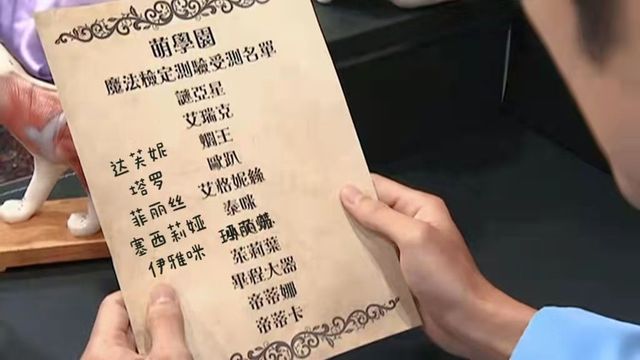 萌學園
魔法檢定測驗受測名單
謎亞星
艾瑞克
燜王
歐趴
艾格妮絲
泰咪
茱莉葉
畢程大器
帝蒂娜
帝蒂卡
达芙妮
塔罗
菲丽丝
塞西莉娅
伊雅咪